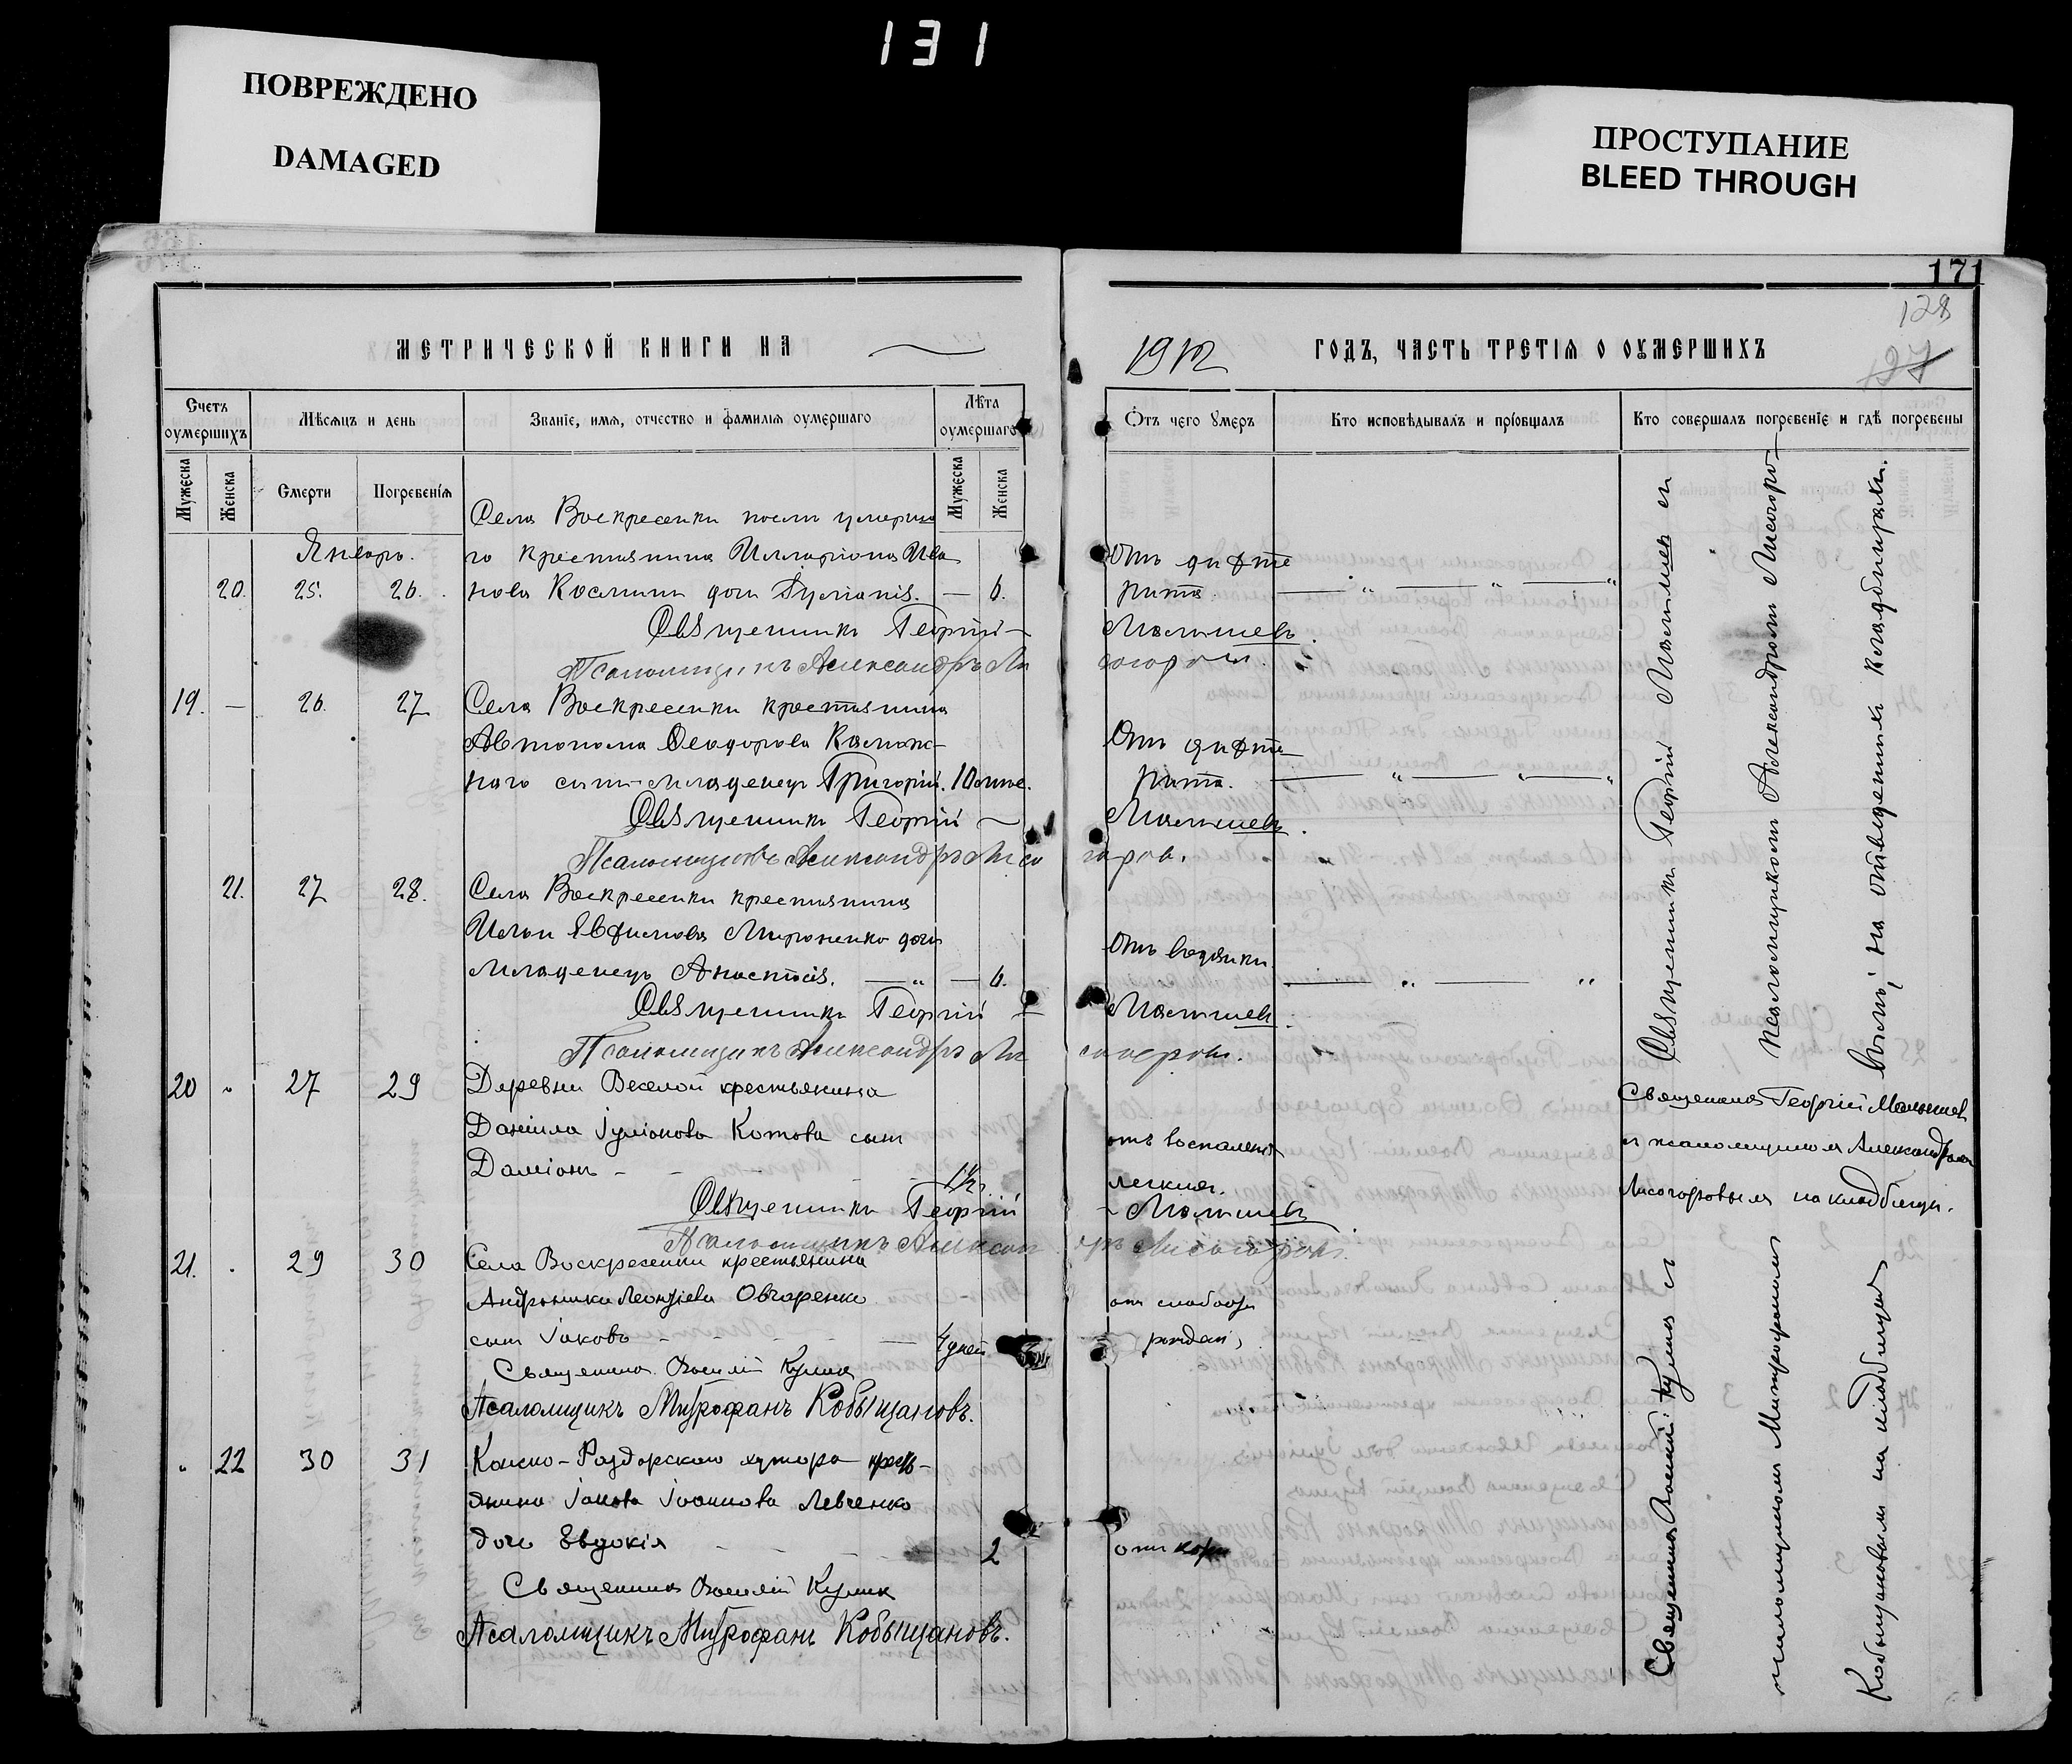 131
ПОВРЕЖДЕНО
DAMAGED
ПРОСТУПАНИЕ
BLEED THROUGH
171
128
127
МЕТРИЧЕСКОЙ КНИГИ НА
1912
ГОДЪ, ЧАСТЬ ТРЕТІЯ О ОУМЕРШИХЪ
Счетъ оумершихъ
Мѣсяцъ и день
Званіе, имя, отчество и фамилія оумершаго
Лѣта оумершаго
Отъ чего умеръ
Кто исповѣдывалъ и пріобщалъ
Кто совершалъ погребеніе и гдѣ погребены
Мужеска
Женска
Смерти
Погребенія
Мужеска
Женска
Села Воскресенки послѣ умерша
Январь.
го крестьянина Илларіона Ива
Отъ дифте
20. 25. 26.
нова дочь Іуліанія. — 6.
рита.
Священникъ Георгій
Малышевъ.
Псаломщикъ Александръ Ли
согоровъ.
19. — 26. 27
Села Воскресенки крестьянина
Автонома Ѳеодорова
Отъ дифте
сынъ младенецъ Григорій. 10
рита.
Священникъ Георгій
Малышевъ.
Псаломщикъ Александръ Лисо
горовъ.
21. 27 28.
Села Воскресенки крестьянина
Ильи Евфимова Мироненко дочь
Отъ водянки
младенецъ Анастасія. — „ — 6.
Священникъ Георгій
Малышевъ.
Псаломщикъ Александръ Ли
согоровъ.
Священникъ Георгій Малышевъ съ
псаломщикомъ Александромъ Лисогоро-
вымъ, на отведенныхъ кладбищахъ.
20 „ 27 29
Деревни Веселой крестьянина
Даніила Іуліанова Котова сынъ
отъ воспаленія
Даміанъ - - - 1½
легкихъ.
Священникъ Георгій
Малышевъ
Псаломщикъ Алексан
дръ Лисогоровъ.
Священникъ Георгій Малышев
съ псаломщикомъ Александромъ
Лисогоровымъ на кладбищѣ.
21. . 29 30
Села Воскресенки крестьянина
Андроника Леонтіева Овчаренко
отъ слабости
сынъ Іаковъ - - - 4 дней
рожден,
Священникъ Василій Куликъ
Псаломщикъ Митрофанъ Кобыщановъ.
„ 22 30 31
Конско-Раздорскаго хутора крест-
янина Іакова Іоаннова Левченко
дочь Евдокія - - - 2
отъ кори
Священникъ Василій Куликъ
Псаломщикъ Митрофанъ Кобыщановъ.
Священникъ Василій Куликъ съ
псаломщикомъ Митрофаномъ
Кобыщановымъ на кладбищѣ